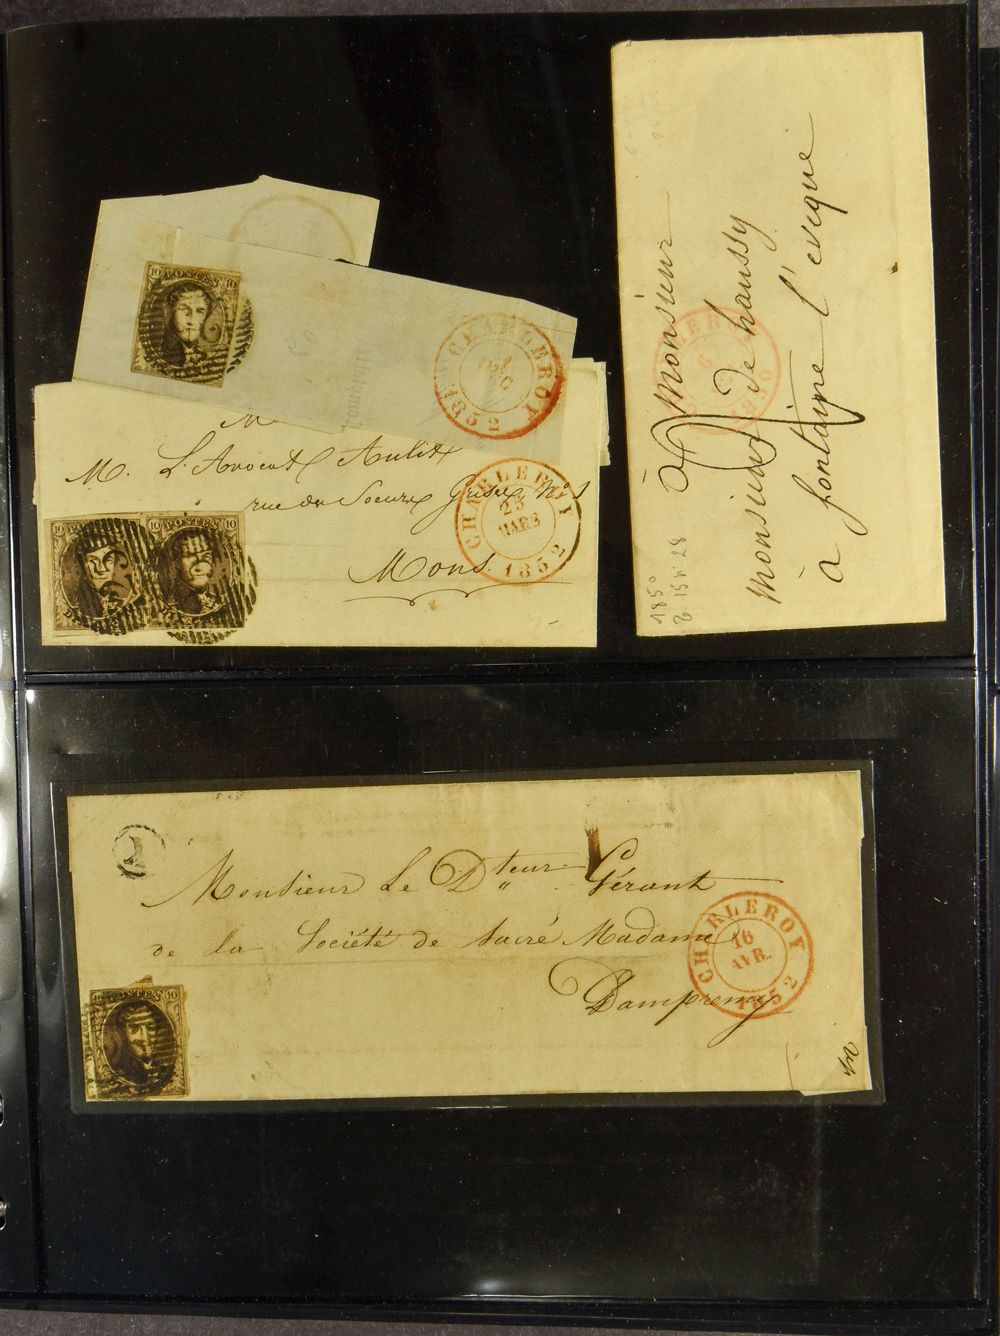 10 POSTES 10
CHARLEROY
DEC
1852
M.
M. L'Avocat Aulit
rue des Soeurs Grises N° 1
Mons.
10 POSTES 10
10 POSTES 10
CHARLEROY
23
MARS
1852
à Monsieur
Monsieur de haussy
à fontaine l'evêque
6
1850
1850
1
Monsieur Le Dteur Gérant
de la Société de Sacré Madame
Dampremy
10 POSTES 10
CHARLEROY
16
AVR.
1852